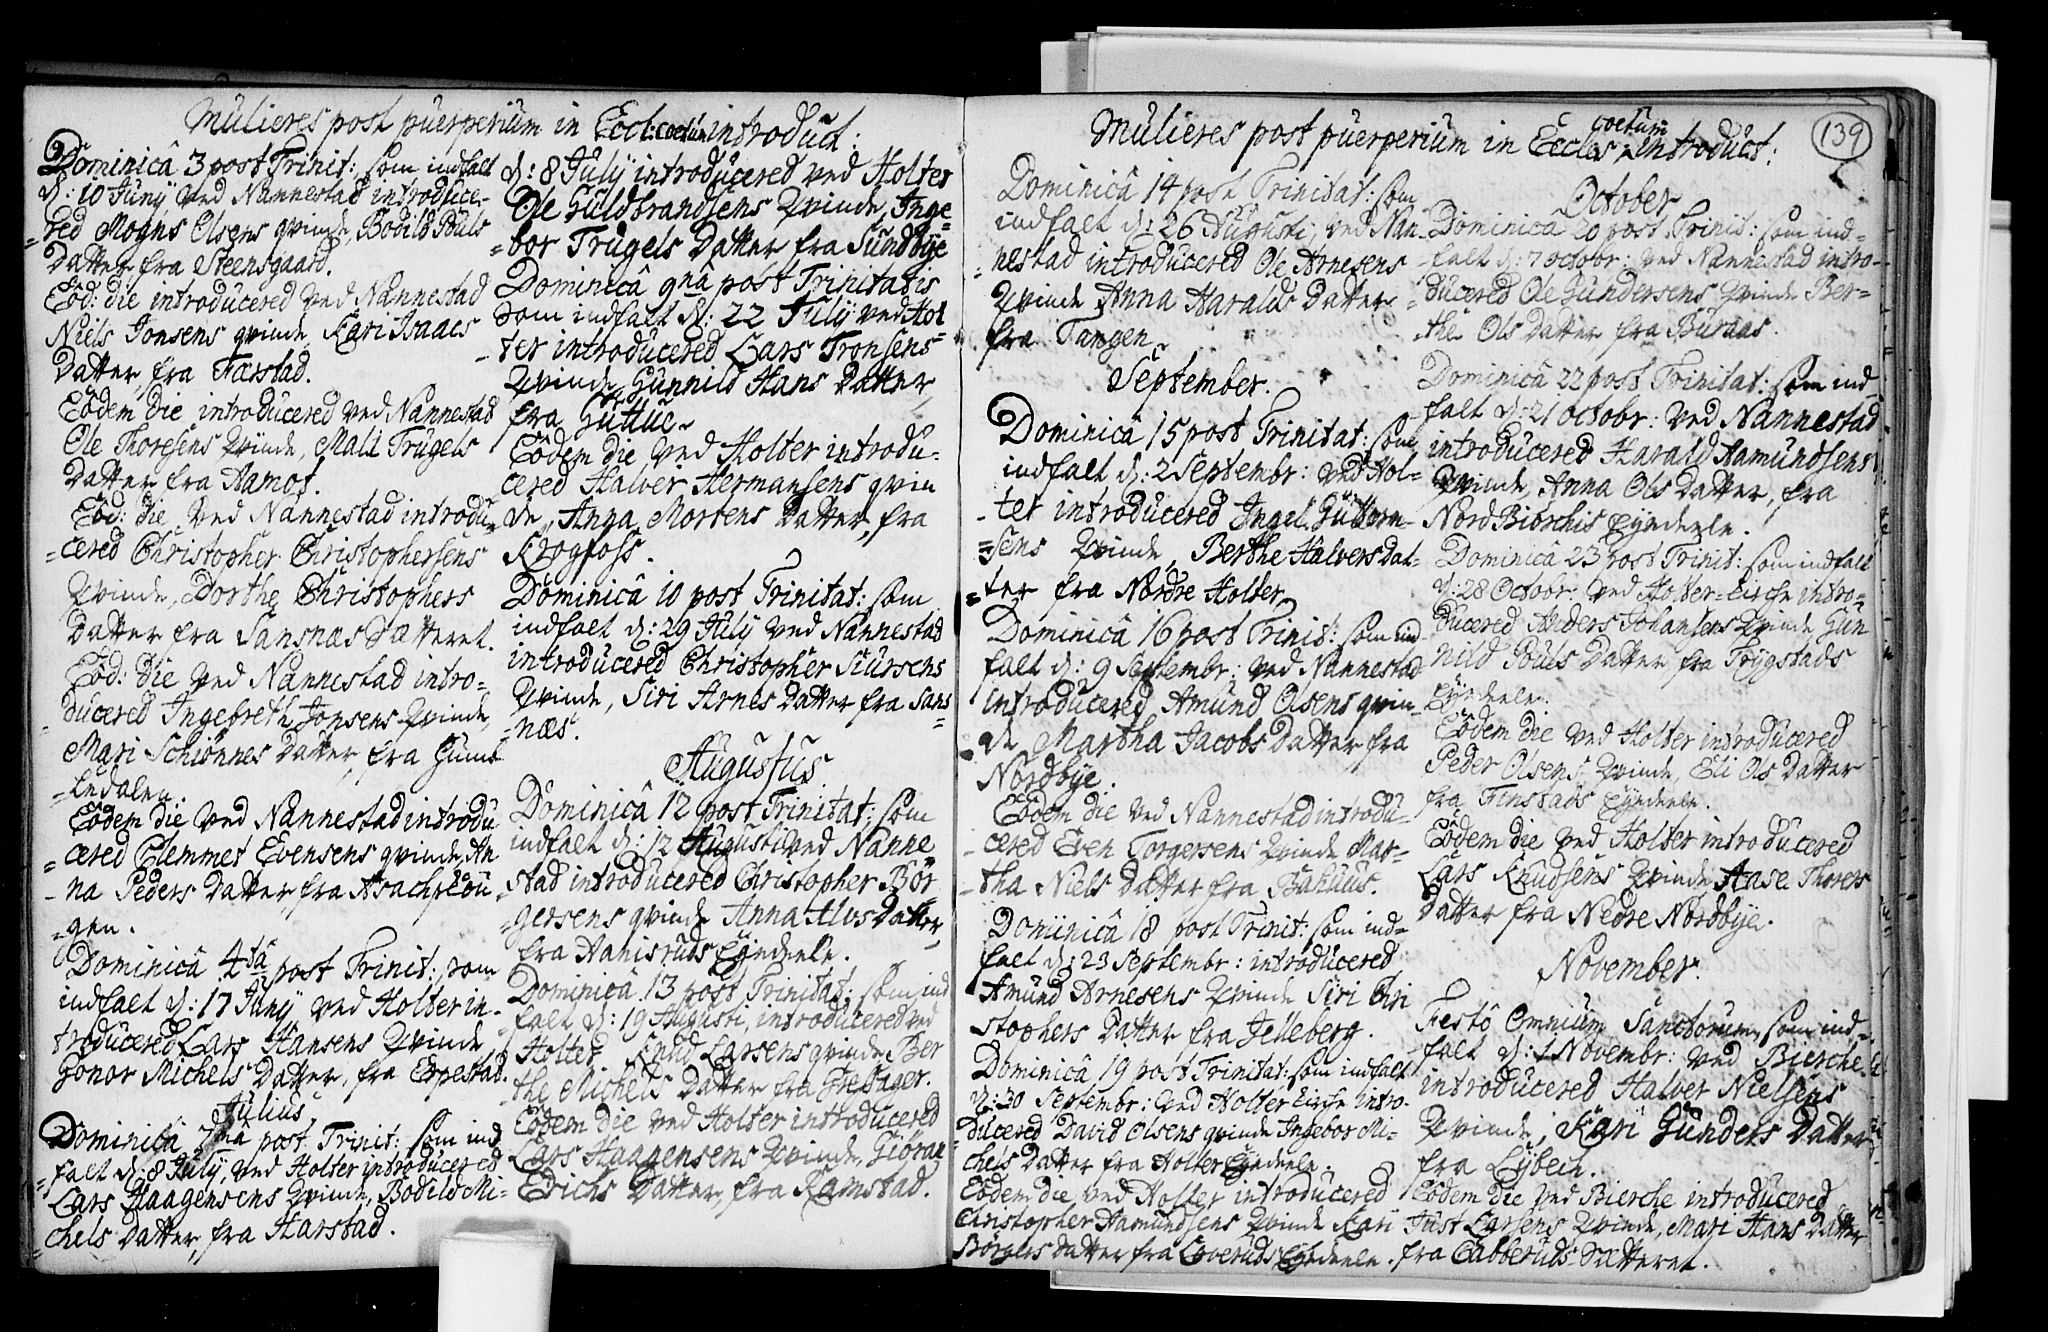 Mulieres post puerperium in Eccl: coetum introduct:
Dominicâ 3 post Trinit: som indfalt
d: 10 Junÿ ved Nannestad introduce-
=red Mogns Olsens qvinde, Bodild Pouls
Datter fra Steensgaard.
Eod: die introducered ved Nannestad
Niels Jonsens qvinde, Kari Isaacs
Datter, fra Færstad.
Eodem die introducered ved Nannestad
Ole Thoresens Qvinde, Mali Trugels
Datter fra Aamot.
Eod: die, ved Nannestad introdu-
=cered Christopher Christophersens
Qvinde, Dorthe Christophers
Datter fra Sansnæs Sætteret.
Eod: die ved Nannestad intro-
ducered Ingebreth Jonsens Qvinde,
Mari Schiønnes Datter, fra

Eodem die ved Nannestad introdu
=cered Clemmet Evensens qvinde, An
-na Peders Datter, fra
=gen.
Dominicâ 4tâ post Trinit: som
indfalt d: 17 Junÿ ved Holter in-
troducered Lars Hansens Qvinde
Gonor Michels Datter, fra Erpestad.
Julius
Dominicâ 7mâ post Trinit: som ind
=falt d: 8 July, ved Holter introducered
Lars Haagensens Qvinde, Bodild Mi-
=chels Datter, fra Harstad.
d: 8 July introducered ved Holter
Ole Guldbrandsens Qvinde, Inge=
=bor Trugels Datter fra Sundbye
Dominicâ 9nâ post Trinitatis
som indfalt d: 22 July ved Hol
-ter introducered Lars Tronsens
Qvinde, Gunnild Hans Datter
fra
Eodem die, ved Holter introdu-
cered Halver Hermansens qvin
de, Anna Mortens Datter, fra
Krogfoss.
Dominicâ 10 post Trinitat: som
indfalt d: 29 July ved Nannestad
introducered Christopher Siursens
Qvinde, Siri Arnes Datter fra Sans
=næs.
Augustus
Dominicâ 12 post Trinitat: som
indfalt d: 12 Augusti ved Nanne
stad introducered Christopher Bør
=gersens qvinde Anna Alvs Datter,
fra Hanisruds Eÿedeele.
Dominicâ 13 post Trinitat: som ind
falt d: 19 Augusti, introducered ved
Holter Knud Larsens qvinde, Ber
the Michels Datter fra Helsager.
Eodem die ved Holter introducered
Lars Haagensens Qvinde, Giøran
Erichs Datter, fra Ramstad.
139
Mulieres post puerperium in Eccles: coetum introduct:
Dominicâ 14 post Trinitat: som
indfalt d: 26 Augusti, ved Nan-
nestad introducered Ole Arnesens
Qvinde Anna Haralds Datter
fra Tangen.
September.
Dominicâ 15 post Trinitat: som
indfalt d: 2 Septembr: ved Hol-
-ter introducered Ingel Guttorm-
=sens Qvinde, Berthe Halvers Dat-
=ter fra Nordre Holter
Dominicâ 16 post Trinit: som ind
falt d: 9 Septembr: ved Nannestad
introducered Amund Olsens qvin
de Martha Jacobs Datter fra
Nordbye.
Eodem die ved Nannestad introdu-
-cered Even Torgersens Qvinde Mar-
-tha Niels Datter fra Bahuus.
Dominicâ 18 post Trinit: som ind=
falt d: 23 Septembr: introducered
Amund Arnesens Qvinde Siri Chri
stophers Datter fra Jelleberg.
Dominicâ 19 post Trinitat: som indfalt
d: 30 Septembr: ved Holter Kirche intro-
ducered David Olsens qvinde Ingebor Mi-
chels Datter fra Holter Eÿedeele.
Eodem die ved Holter introducered
Christopher Aamundsens Qvinde Kari
Børgers Datter fra Løveruds Eÿedeele.
October
Dominicâ 20 post Trinit: som ind=
falt d: 7 octobr: ved Nannestad intro-
=ducered Ole Gundersens Qvinde Ber-
-the Ols Datter, fra Buraas.
Dominicâ 22 post Trinitat: som ind
falt d: 21 octobr: ved Nannestad
introducered Harald Aamundsens
Qvinde, Anna Ols Datter, fra
Nord Biørchis Eÿedeele.
Dominicâ 23 post Trinit: som indfalt
d: 28 Octobr: ved Holter=Kirche intro-
ducered Anders Johansens Qvinde Gun
nild Pouls Datter, fra Trygstads
Eÿedeele.
Eodem die ved Holter introducered
Peder Olsens Qvinde, Eli Ols Datter
fra Finstads Eÿedeele.
Eodem die ved Holter introducered
Lars Knudsens Qvinde, Aase Thorers
Datter fra Nedre Nordbye.
November.
Festô Omnium Sanctorum, som ind-
falt d: 1 Novembr: ved Bierche
introducered Halver Nielsens
Qvinde, Kari Gunders Datter
fra Lybech.
Eodem die ved Bierche introducered
Just Larsens Qvinde, Mari Hans Datter
fra Gabberuds-Sætteret.